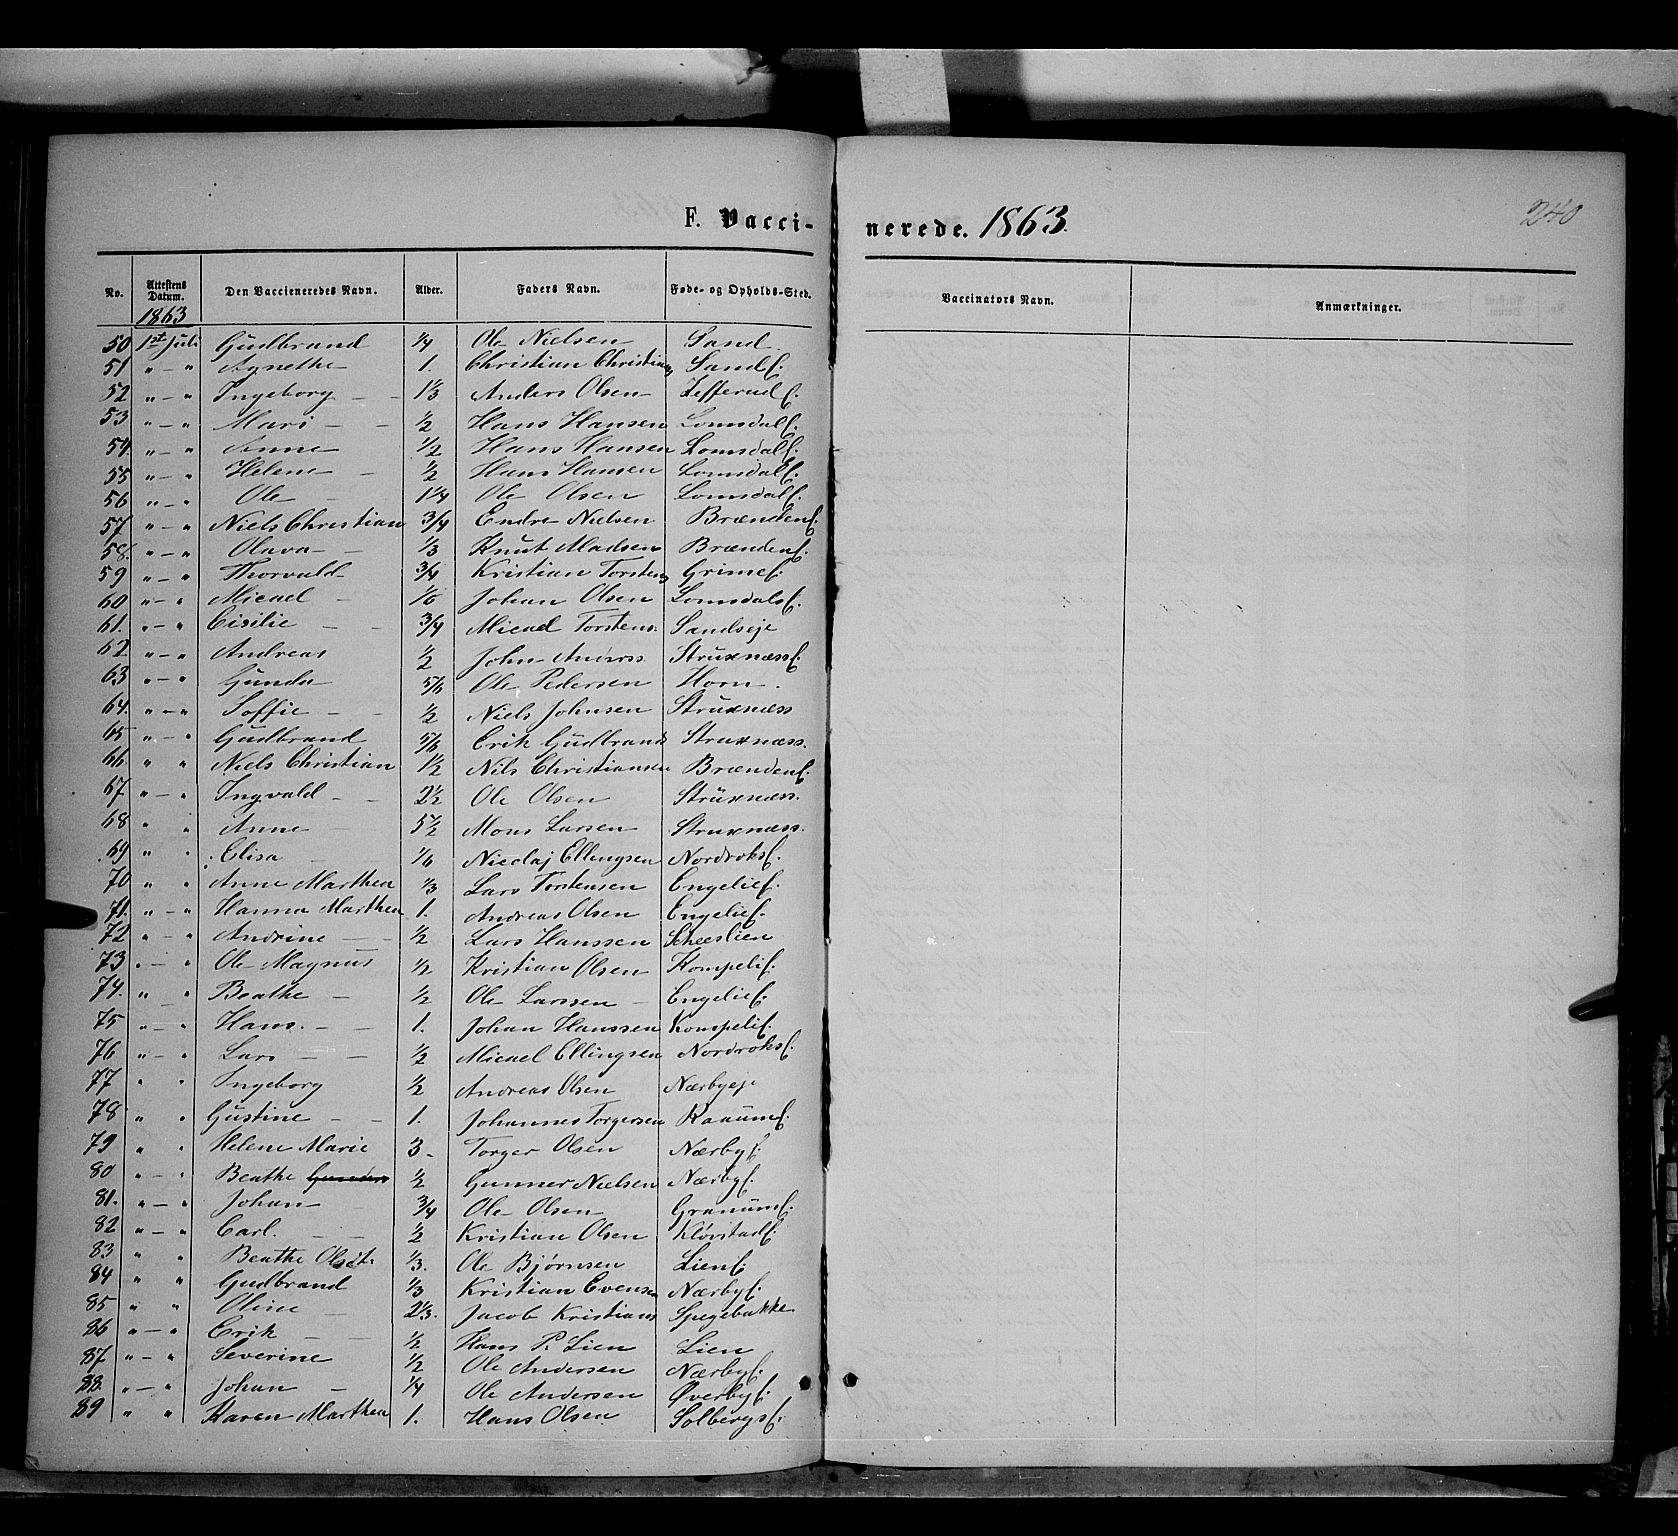 F. Vacci-
nerede. 1863.
240
No. Attestens Datum. Den Vaccieneredes Navn. Alder. Faders Navn. Føde- og Opholds-Sted. Vaccinators Navn. Anmærkninger.
1863
50 1st Juli Gudbrand 1/4 Ole Nielsen Sand.
51 " - " Agnethe 1. Christian Christians Sandf.
52 " - " Ingeborg - - 1 1/3 Anders Olsen Zefferudf.
53 " - " Mari - - 1/2 Hans Hansen Lomsdalf.
54. " - " Anne 1/2 Hans Hansen Lomsdalf.
55 " - " Helene - 1/2 Hans Hansen Lomsdalf.
56 " - " Ole - 1 1/4 Ole Olsen Lomsdalf.
57 " - " Niels Christian 3/4 Endre Nielsen Brændenf.
58. " - " Olava - - 1/3 Knut Madsen Brændenf.
59 " - " Thorvald - 3/4 Kristian Torstens Grimef.
60 " - " Micael - 1/6 Johan Olsen Lomsdalsf.
61. " - " Cisilie - - 3/4 Micael Torstens. Sandseje
62 " - " Andreas 1/2 John Anders. Struxnæssf.
63 " - " Gunda 5/6 Ole Pedersen Horn.
64. " - " Soffie - - 1/2 Niels Johnsen Struxnæss
65 " - " Gudbrand 5/6 Erik Gudbrands Struxnæss.
66. " " Niels Christian 1 1/2 Nils Christiansen Brændenf.
67. " - " Ingvald - - 2 1/2 Ole Olsen Struxnæss.
68 " " Anne - 5 1/2 Mons Larsen Struxnæss.
69 " " Elisa - 1/6 Nicolaj Ellingsen Nordroksf.
70 " " Anne Marthea 1/3 Lars Torstensen Engelief.
71. " - " Hanna Marthea 1. Andreas Olsen Engelief.
72 " - " Andrine - 1/2 Lars Hanssen Scheeslien
73 " - " Ole Magnus 1/2 Kristian Olsen Kompelif.
74. " " Beathe - 1/2 Ole Larssen - Engelief.
75 " - " Hans. - - 1. Johan Hanssen Kompelif.
76 " - " Lars - - 1/2 Micael Ellingsen Nordroksf.
77 " " Ingeborg 1/2 Andreas Olsen Nærbyeje
78 " " Gustine - - 1. Johannes Torgersen Raaumf.
79 " " Helene Marie 3 - Torger Olsen Nærbyf.
80 " - " Beathe 1/2 Gunner Nielsen Nærbyf.
81. " - " Johan - 3/4 Ole Olsen Granumf.
82 " - " Carl. - - 1/2 Kristian Olsen Kløvstadf.
83 " " Beathe Olset. 1/3. Ole Bjørnsen Lienf.
84 " " Gudbrand 1/3 Kristian Evensen Nærbyf.
85 " " Oline - 2 1/3. Jacob Kristians Spegebakke
86 " - " Erik - - 1/2 Hans P. Lien Lien
87 " - " Severine 1/2 Ole Andersen Nærbyf.
88. " - " Johan - 1/4 Ole Andersen Øverbyf.
89 " " Karen Marthea 1. Hans Olsen Solbergsf.